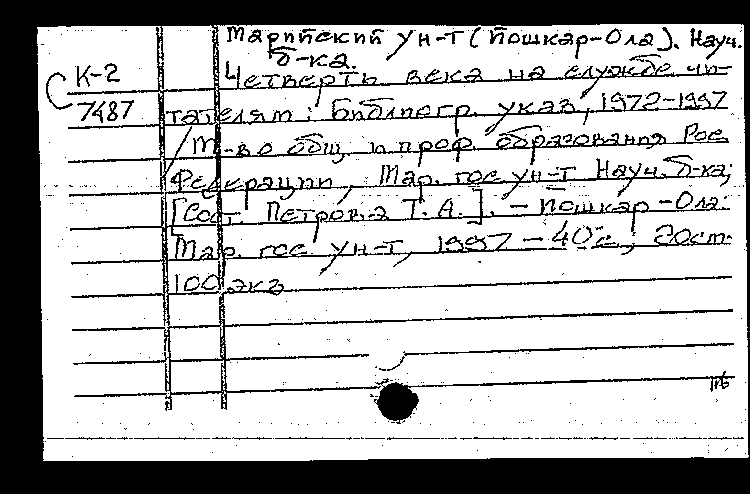 Марийский ун-т (Йошкар-Ола). Науч.
б-ка.
К-2
Четверть века на службе чи-
7487
тателям: Библиогр. указ., 1972-1997
/ М-во общ. и проф. образования Рос.
Федерации, Мар. гос ун-т Науч. б-ка;
[Сост. Петрова Т. А.]. - Йошкар-Ола:
Мар. гос ун-т, 1997 - 40 с;
100 экз